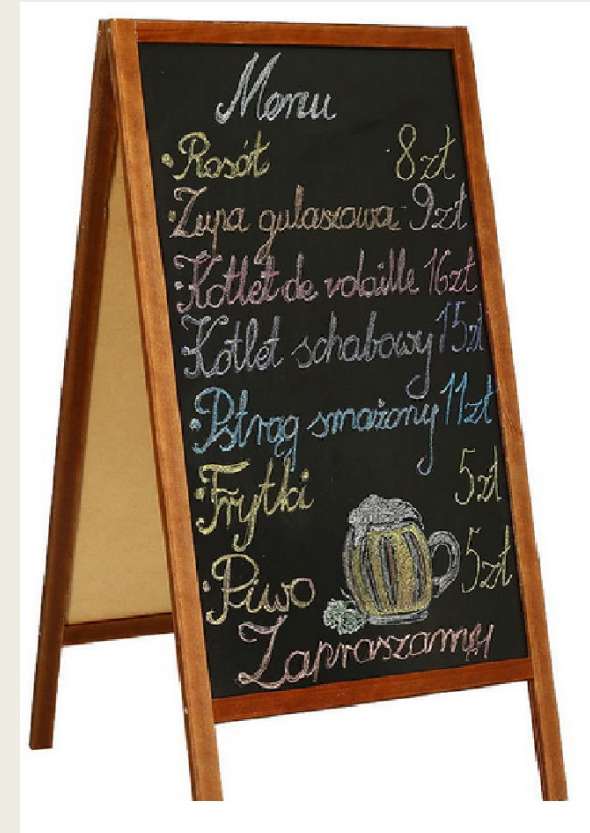 Menu
• Rosół 8 zł
• Zupa gulaszowa 9zł
• Kotlet de volaille 16zł
Kotlet schabowy 15zł
• Pstrąg smażony 11zł
• Frytki 5zł
• Piwo 5zł
Zapraszamy!